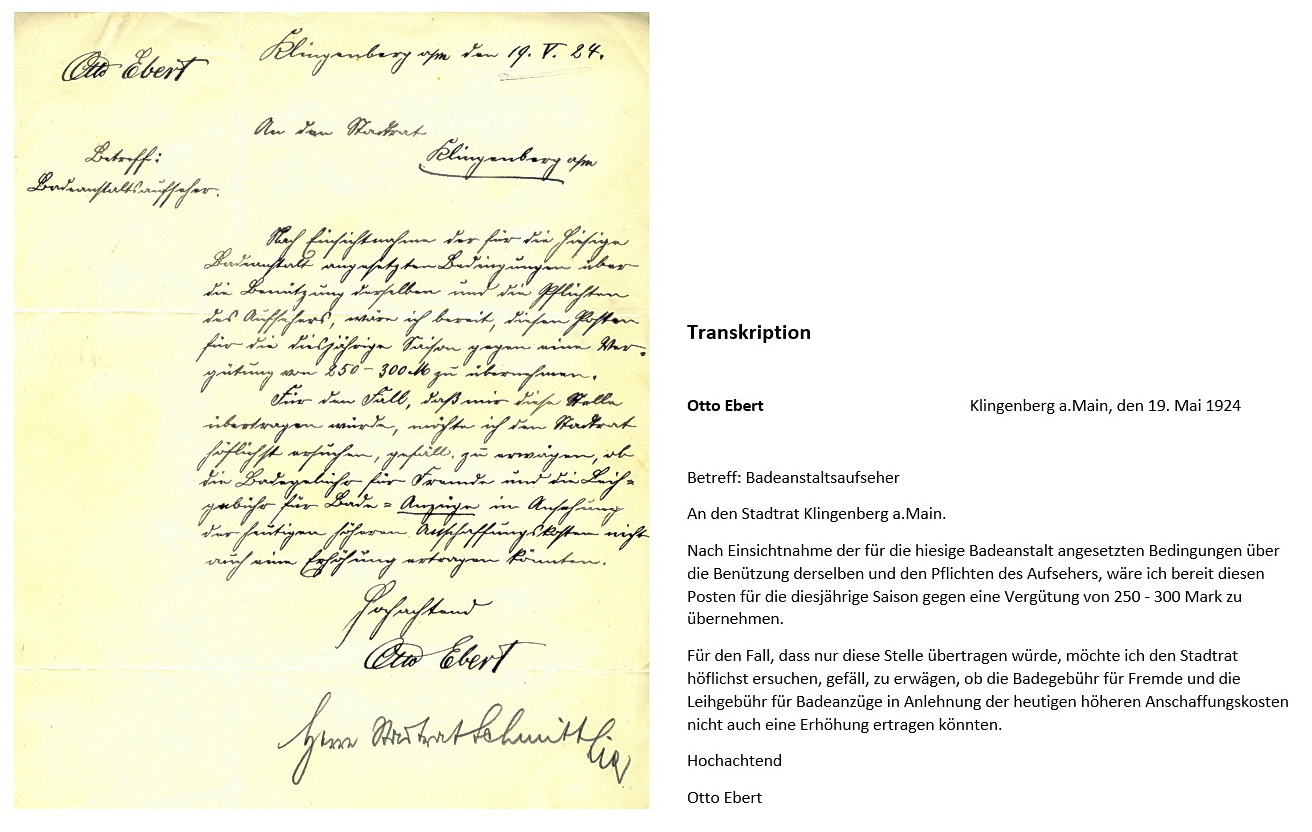 Otto Ebert
Klingenberg a/m den 19. V. 24.
An den Stadtrat
Klingenberg a/m
Betreff:
Badeanstaltsaufseher.
Nach Einsichtnahme der für die hiesige
Badeanstalt angesetzten Bedingungen über
die Benützung derselben und die Pflichten
des Aufsehers, wäre ich bereit, diesen Posten
für die diesjährige Saison gegen eine Ver-
gütung von 250 - 300 M zu übernehmen.
Für den Fall, daß mir diese Stelle
übertragen würde, möchte ich den Stadtrat
höflichst ersuchen, gefäll. zu erwägen, ob
die Badegebühr für Fremde und die Leih-
gebühr für Bade-Anzüge in Ansehung
der heutigen höheren Anschaffungskosten nicht
auch eine Erhöhung ertragen könnten.
Hochachtend
Otto Ebert
Herrn Stadtrat Schmitt
Transkription
Otto Ebert
Klingenberg a.Main, den 19. Mai 1924
Betreff: Badeanstaltsaufseher
An den Stadtrat Klingenberg a.Main.
Nach Einsichtnahme der für die hiesige Badeanstalt angesetzten Bedingungen über
die Benützung derselben und den Pflichten des Aufsehers, wäre ich bereit diesen
Posten für die diesjährige Saison gegen eine Vergütung von 250 - 300 Mark zu
übernehmen.
Für den Fall, dass nur diese Stelle übertragen würde, möchte ich den Stadtrat
höflichst ersuchen, gefäll, zu erwägen, ob die Badegebühr für Fremde und die
Leihgebühr für Badeanzüge in Anlehnung der heutigen höheren Anschaffungskosten
nicht auch eine Erhöhung ertragen könnten.
Hochachtend
Otto Ebert